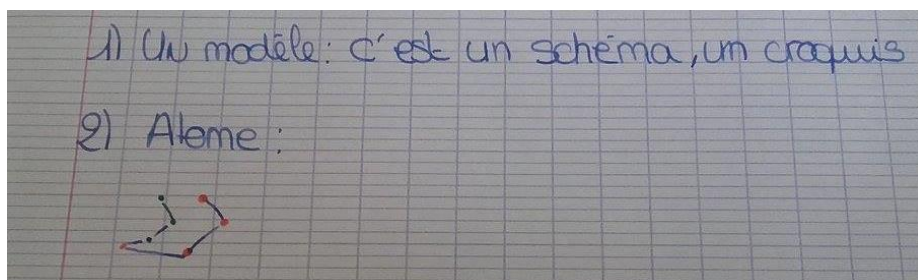 1) Un modèle: c'est un schéma, un croquis
2) Atome: